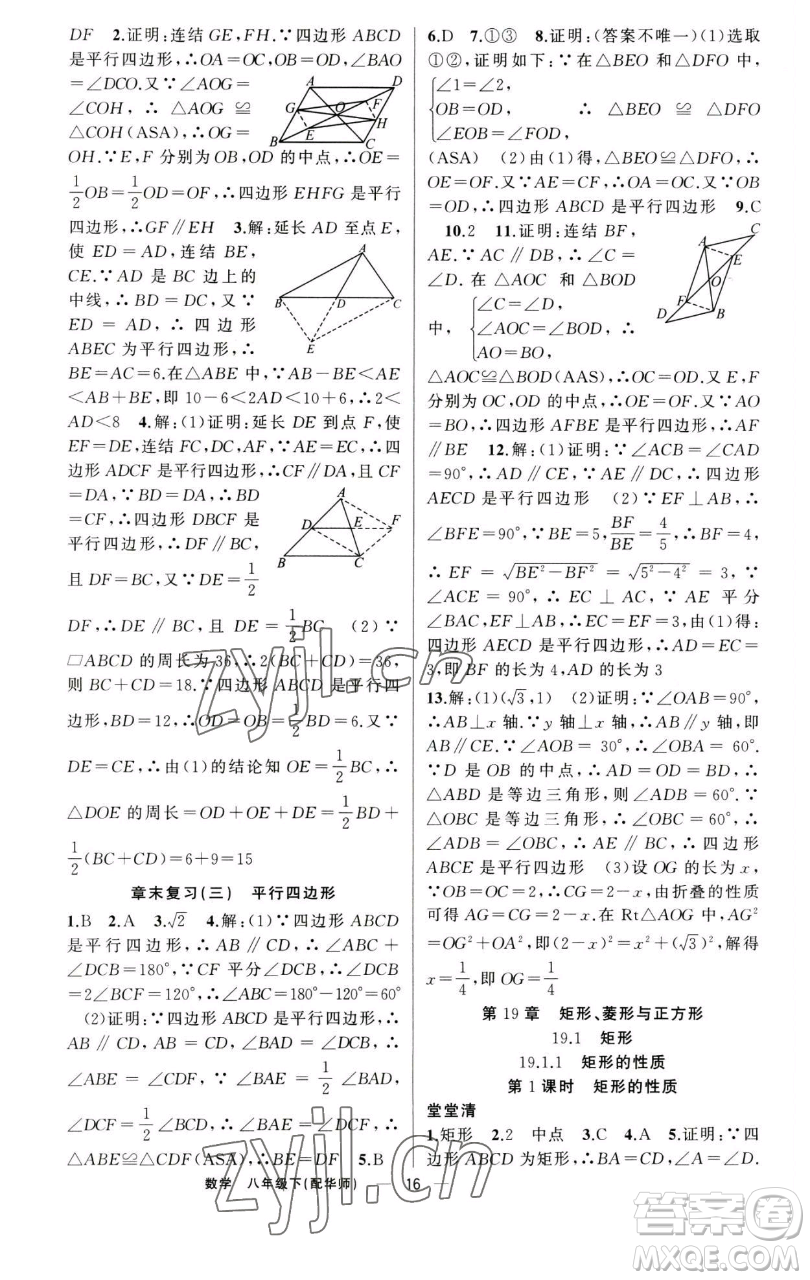 DF　2.证明:连结 GE,FH.∵四边形 ABCD
是平行四边形,∴OA=OC,OB=OD,∠BAO
=∠DCO.又∵∠AOG=
∠COH, ∴ △AOG ≌
△COH(ASA),∴OG=
OH.∵E,F 分别为 OB,OD 的中点,∴OE=
1/2 OB=1/2 OD=OF,∴四边形 EHFG 是平行
四边形,∴GF∥EH　3.解:延长 AD 至点 E,
使 ED = AD,连结 BE,
CE.∵AD 是 BC 边上的
中线,∴BD=DC,又∵
ED = AD,∴ 四 边 形
ABEC 为平行四边形,∴
BE=AC=6.在△ABE 中,∵AB-BE<AE
<AB+BE,即 10-6<2AD<10+6,∴2<
AD<8　4.解:(1)证明:延长 DE 到点 F,使
EF=DE,连结 FC,DC,AF,∵AE=EC,∴四
边形 ADCF 是平行四边形,∴CF∥DA,且 CF
=DA,∵BD=DA,∴BD
=CF,∴四边形 DBCF 是
平行四边形,∴DF∥BC,
且 DF=BC,又∵DE=1/2
DF,∴DE∥BC,且 DE=1/2 BC　(2)∵
□ABCD 的周长为 36,∴2(BC+CD)=36,
则 BC+CD=18.∵四边形 ABCD 是平行四
边形,BD=12,∴OD=OB=1/2 BD=6.又∵
DE=CE,∴由(1)的结论知 OE=1/2 BC,∴
△DOE 的周长=OD+OE+DE=1/2 BD+
1/2 (BC+CD)=6+9=15
章末复习(三)　平行四边形
1.B　2.A　3.√2　4.解:(1)∵四边形 ABCD
是平行四边形,∴AB∥CD,∴∠ABC+
∠DCB=180°,∵CF 平分∠DCB,∴∠DCB
=2∠BCF=120°,∴∠ABC=180°-120°=60°
(2)证明:∵四边形 ABCD 是平行四边形,∴
AB∥CD,AB=CD,∠BAD=∠DCB,∴
∠ABE = ∠CDF,∵∠BAE = 1/2 ∠BAD,
∠DCF=1/2 ∠BCD,∴∠BAE=∠DCF,∴
△ABE≌△CDF(ASA),∴BE=DF　5.B
6.D　7.①③　8.证明:(答案不唯一)(1)选取
①②,证明如下:∵在△BEO 和△DFO 中,
∠1=∠2,
OB=OD, ∴ △BEO ≌ △DFO
∠EOB=∠FOD,
(ASA)　(2)由(1)得,△BEO≌△DFO,∴
OE=OF.∵AE=CF,∴OA=OC.又∵OB
=OD,∴四边形 ABCD 是平行四边形　9.C
10.2　11.证明:连结 BF,
AE.∵AC∥DB,∴∠C=
∠D.在△AOC 和△BOD
中,
∠C=∠D,
∠AOC=∠BOD, ∴
AO=BO,
△AOC≌△BOD(AAS),∴OC=OD.又 E,F
分别为 OC,OD 的中点,∴OF=OE.又∵AO
=BO,∴四边形 AFBE 是平行四边形,∴AF
∥BE　12.解:(1)证明:∵∠ACB=∠CAD
=90°,∴AD∥CE,∵AE∥DC,∴四边形
AECD 是平行四边形　(2)∵EF⊥AB,∴
∠BFE=90°,∵BE=5,BF/BE=4/5,∴BF=4,
∴EF=√(BE²-BF²)=√(5²-4²)=3,∵
∠ACE = 90°,∴ EC ⊥ AC,∵ AE 平分
∠BAC,EF⊥AB,∴EF=EC=3,由(1)得:
四边形 AECD 是平行四边形,∴AD=EC=
3,即 BF 的长为 4,AD 的长为 3
13.解:(1)(√3,1)　(2)证明:∵∠OAB=90°,
∴AB⊥x 轴.∵y 轴⊥x 轴,∴AB∥y 轴,即
AB∥CE.∵∠AOB= 30°,∴∠OBA= 60°.
∵D 是 OB 的中点,∴AD=OD=BD,∴
△ABD 是等边三角形,则∠ADB=60°.又∵
△OBC 是等边三角形,∴∠OBC=60°,∴
∠ADB=∠OBC,∴AE∥BC,∴四边形
ABCE 是平行四边形　(3)设 OG 的长为 x,
∵OC=OB=2,∴CG=2-x,由折叠的性质
可得 AG=CG=2-x,在 Rt△AOG 中,AG²
=OG²+OA²,即(2-x)²=x²+(√3)²,解得
x=1/4,即 OG=1/4
第 19 章　矩形、菱形与正方形
19.1　矩形
19.1.1　矩形的性质
第 1 课时　矩形的性质
堂堂清
1.矩形　2.2　中点　3.C　4.A　5.证明:∵四
边形 ABCD 为矩形,∴AB=CD,∠A=∠D=
数学　八年级下(配华师)　— 16 —